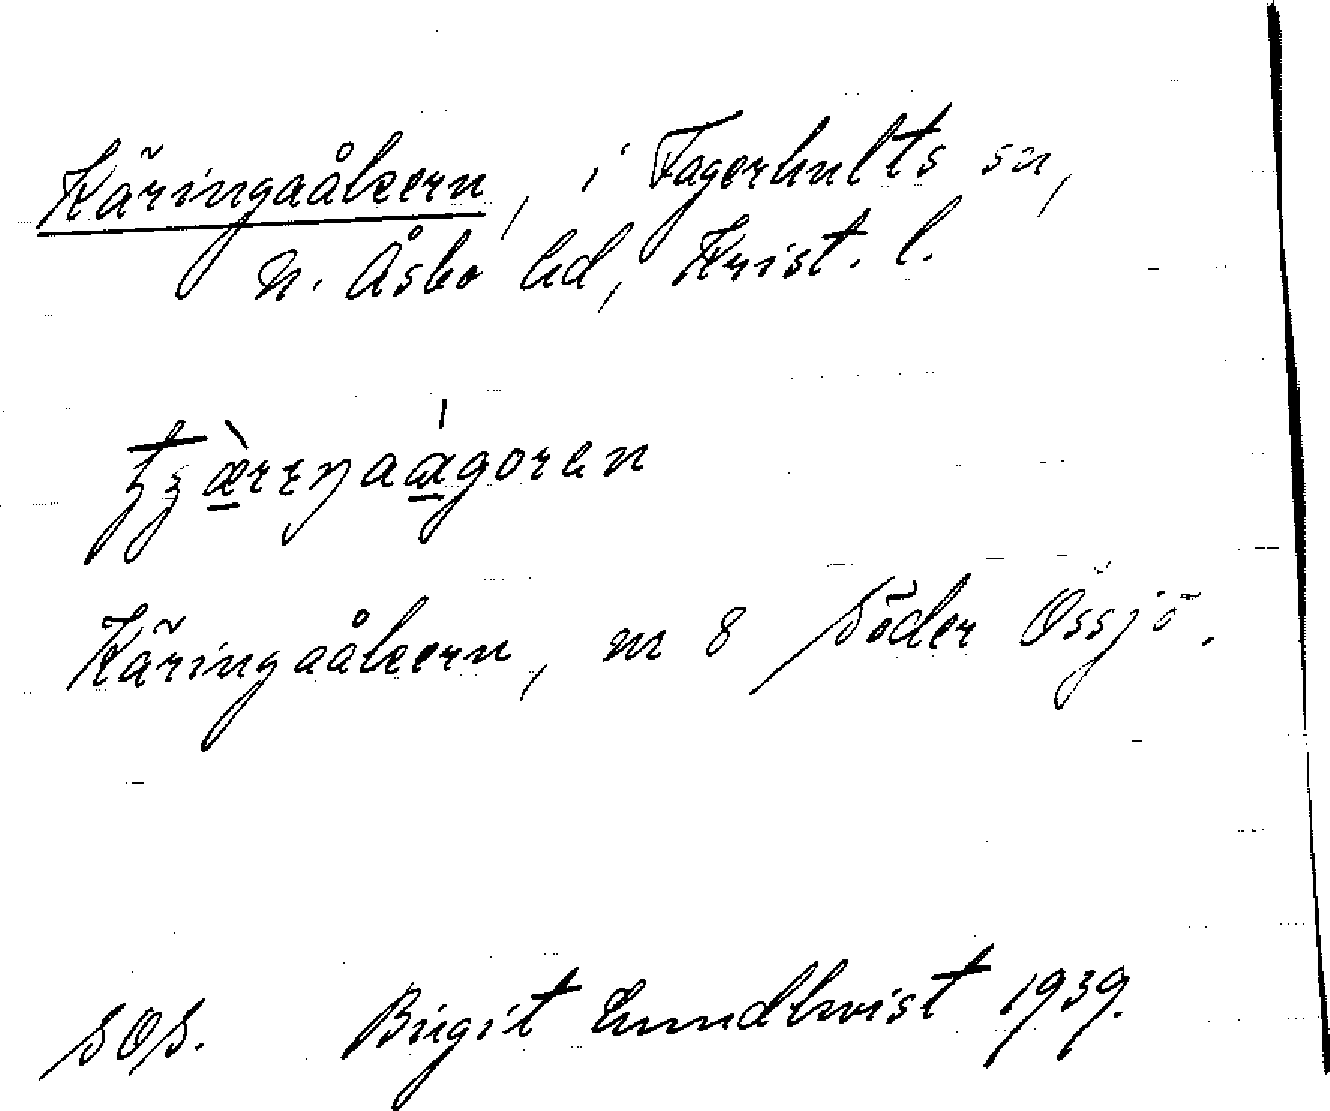 Käringaåkern, i Fagerhults sn,
N. Åsbo hd, Krist. l.
Käringaåkern, m 8 Söder Össjö.
SOS. Birgit Lundkvist 1939.